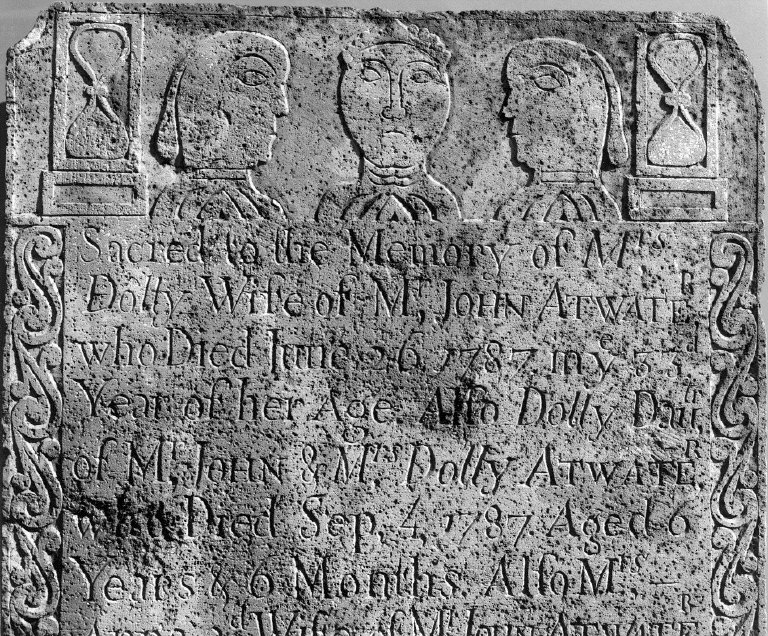 Sacred to the Memory of Mrs
Dolly Wife of Mr, JOHN ATWATER
who Died June 26, 1787 in ye 33d
Year of her Age. Alſo Dolly Datr,
of Mr, JOHN & Mrs Dolly ATWATER
who Died Sep, 4, 1787 Aged 6
Years & 6 Months. Alſo Mrs,
Anna 2d Wife of Mr JOHN ATWATER